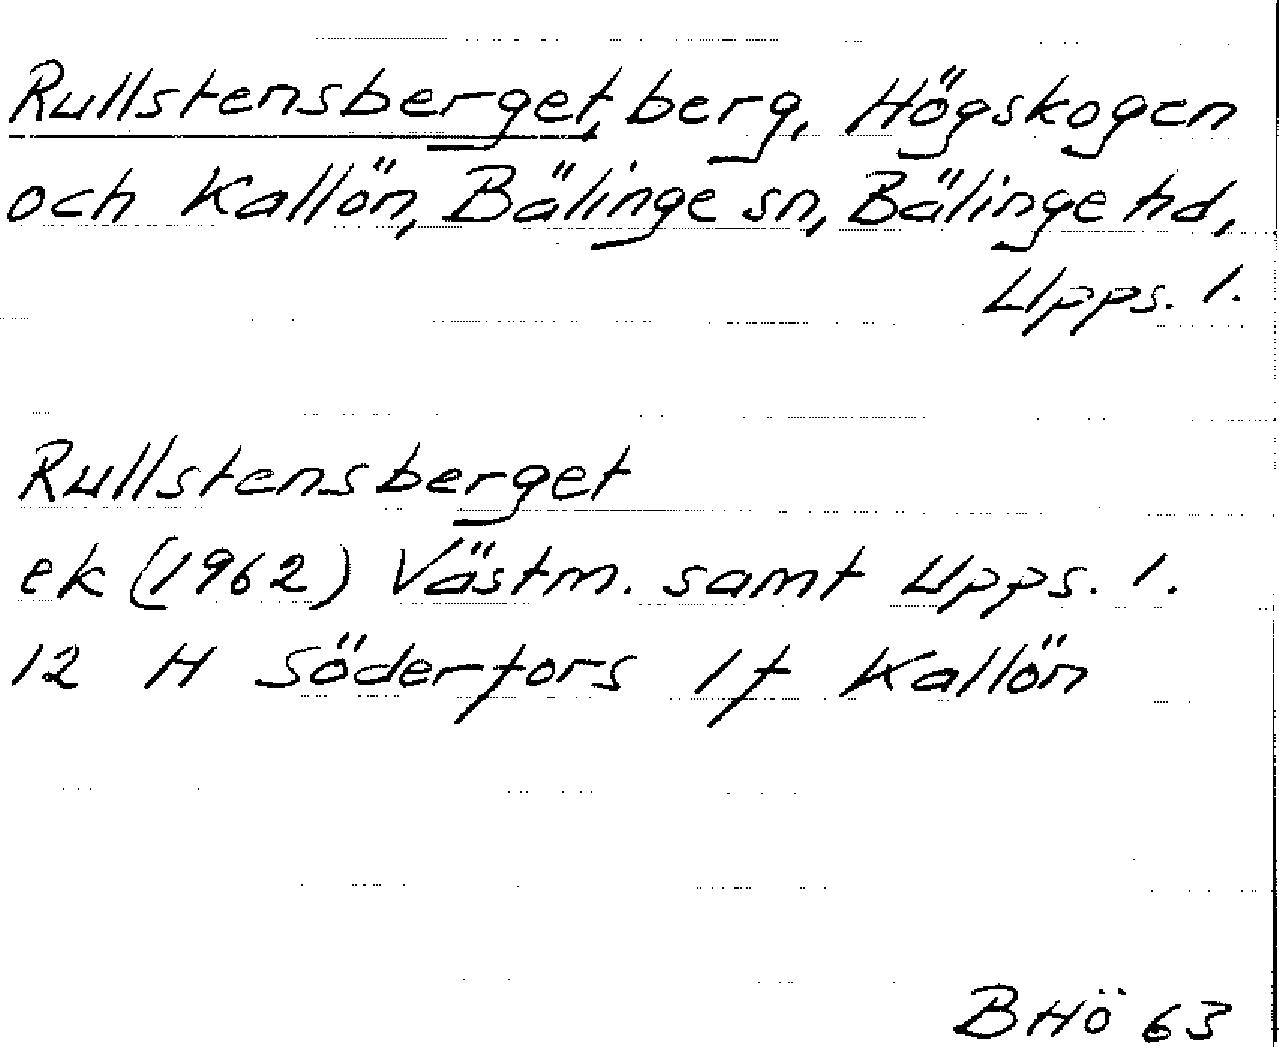 Rullstensberget, berg, Högskogen
och Kallön, Bälinge sn, Bälinge hd,
Upps. l.
Rullstensberget
ek (1962) Västm. samt Upps. l.
12 H Söderfors 1f Kallön
BHö 63